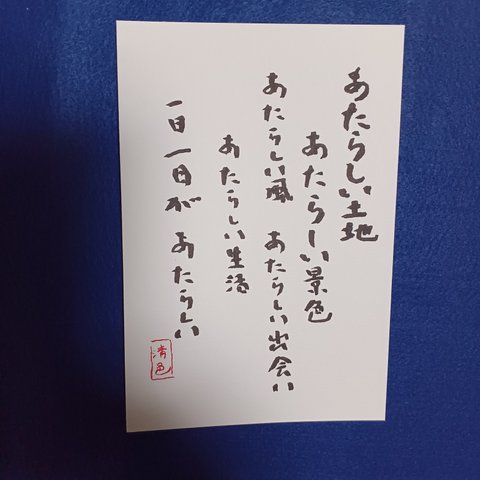 あたらしい土地
あたらしい景色
あたらしい風 あたらしい出会い
あたらしい生活
一日一日が あたらしい
清色